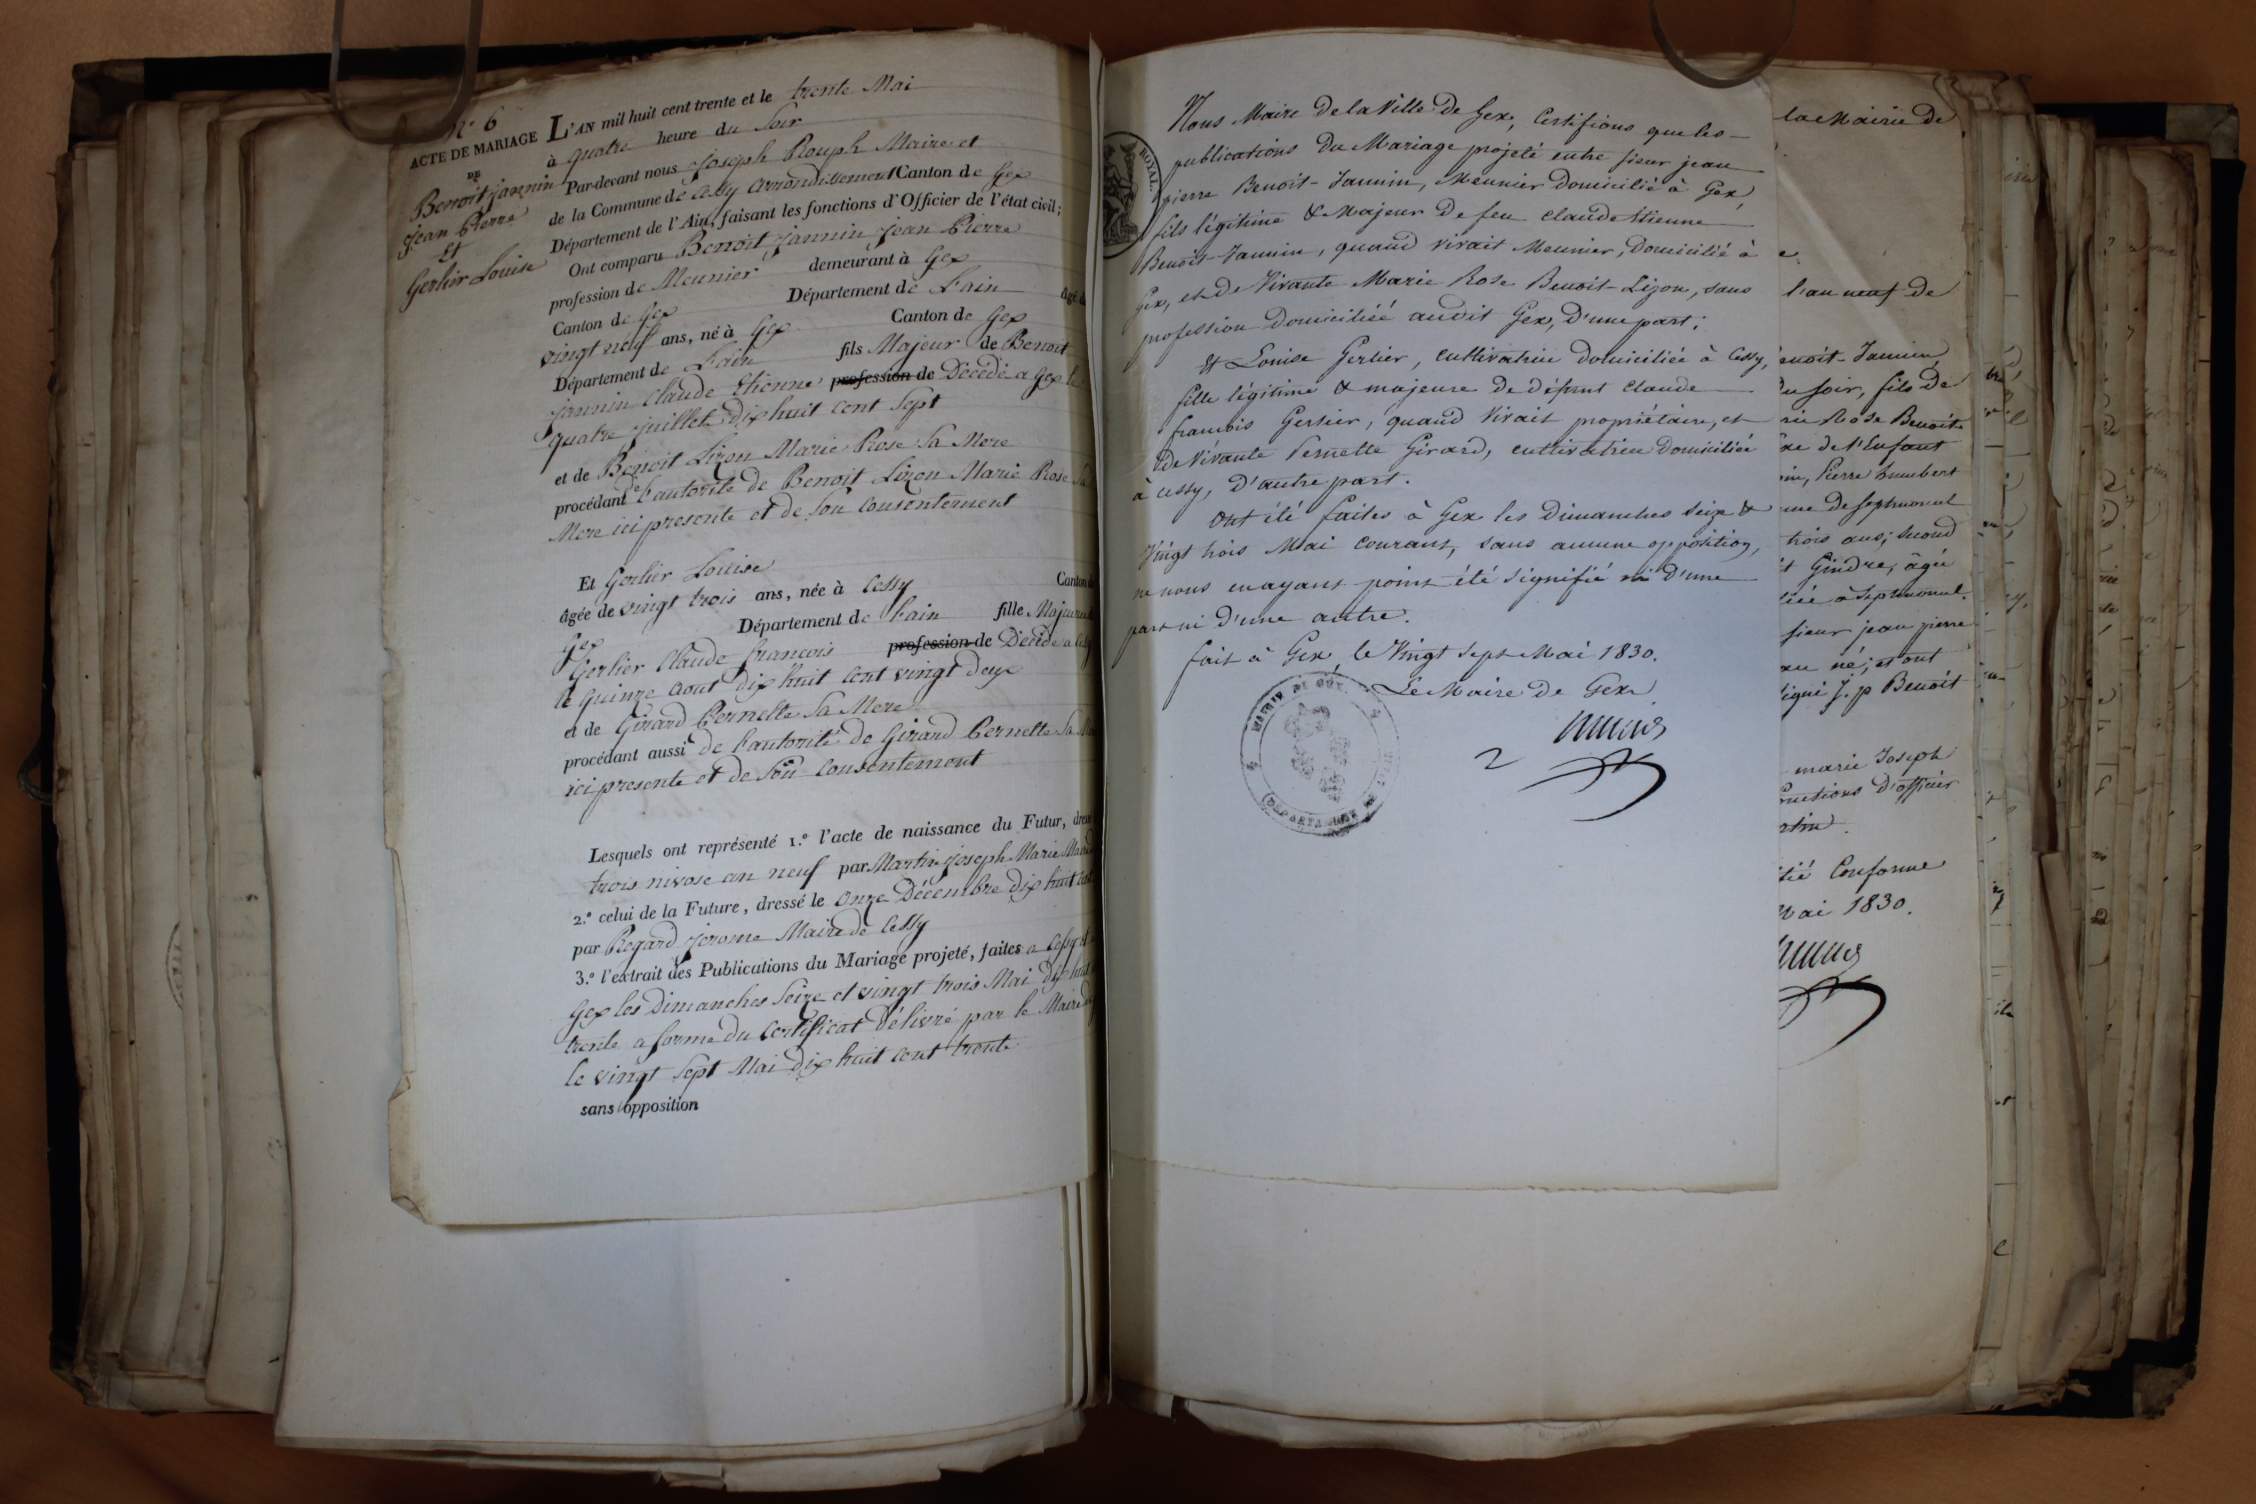 N° 6
ACTE DE MARIAGE
DE
Benoit jannin
jean Pierre
Et
Gerlier Louise
L'AN mil huit cent trente et le trente Mai
à quatre heure du Soir
Par-devant nous joseph Rouph Maire et
de la Commune de Cessy arrondissement Canton de Gex
Département de l'Ain, faisant les fonctions d'Officier de l'état civil;
Ont comparu Benoit jannin jean Pierre
profession de Meunier demeurant à Gex
Canton de Gex Département de L'ain âgé de
vingt neuf ans, né à Gex Canton de Gex
Département de L'ain fils Majeur de Benoit
jannin Claude Etienne profession de Décédé a Gex le
quatre juillet dix huit cent Sept
et de Benoit Lizon Marie Rose Sa Mere
procédant de L'autorité de Benoit Lizon Marie Rose Sa
Mere ici presente et de Son Consentement
Et Gerlier Louise
âgée de vingt trois ans, née à Cessy Canton de
Gex Département de L'ain fille Majeure
Gerlier Claude françois profession de Décédé a Cessy
le Quinze aout dix huit cent vingt deux
et de Girard Pernette Sa Mere
procédant aussi de L'autorité de Girard Pernette Sa
ici presente et de Son Consentement
Lesquels ont représenté 1.° l'acte de naissance du Futur, dressé
trois nivose an neuf par Martin joseph Marie
2.° celui de la Future, dressé le onze Décembre dix huit cent
par Regard jerome Maire de Cessy
3.° l'extrait des Publications du Mariage projeté, faites a Cessy et
Gex les Dimanches Seize et vingt trois Mai dix huit
trente a forme du Certificat Délivré par le Maire de
le vingt Sept Mai dix huit cent trente
sans opposition
ROYAL.
Nous Maire De la Ville De Gex, Certifions que les
publications Du Mariage projeté entre sieur jean
pierre Benoit-Jannin, Meunier Domicilié à Gex,
fils légitime & Majeur De feu claude Etienne
Benoit-Jannin, quand vivait Meunier, Domicilié à
Gex, et de Vivante Marie Rose Benoit-Lizon, sans
profession Domiciliée audit Gex, D'une part;
Et Louise Gerlier, cultivatrice Domiciliée à Cessy,
fille légitime & majeure de défunt Claude
françois Gerlier, quand Vivait propriétaire, et
de Vivante Pernette Girard, cultivatrice Domiciliée
à cessy, D'autre part.
Ont été faites à Gex les Dimanches seize &
Vingt trois Mai courant, sans aucune opposition,
ne nous en ayant point été signifié ni D'une
part ni D'une autre.
fait à Gex, le Vingt Sept Mai 1830.
Le Maire De Gex
MAIRIE DE GEX.
la Mairie de
l'an neuf de
Benoit-Jannin
du soir, fils De
Rose Benoit
de l'Enfant
Pierre humbert
de septmoncel
trois ans; second
Gindre, âgé
à septmoncel.
sieur jean pierre
né; et ont
J. p Benoit
marie Joseph
fonctions D'officier
Conforme
Mai 1830.